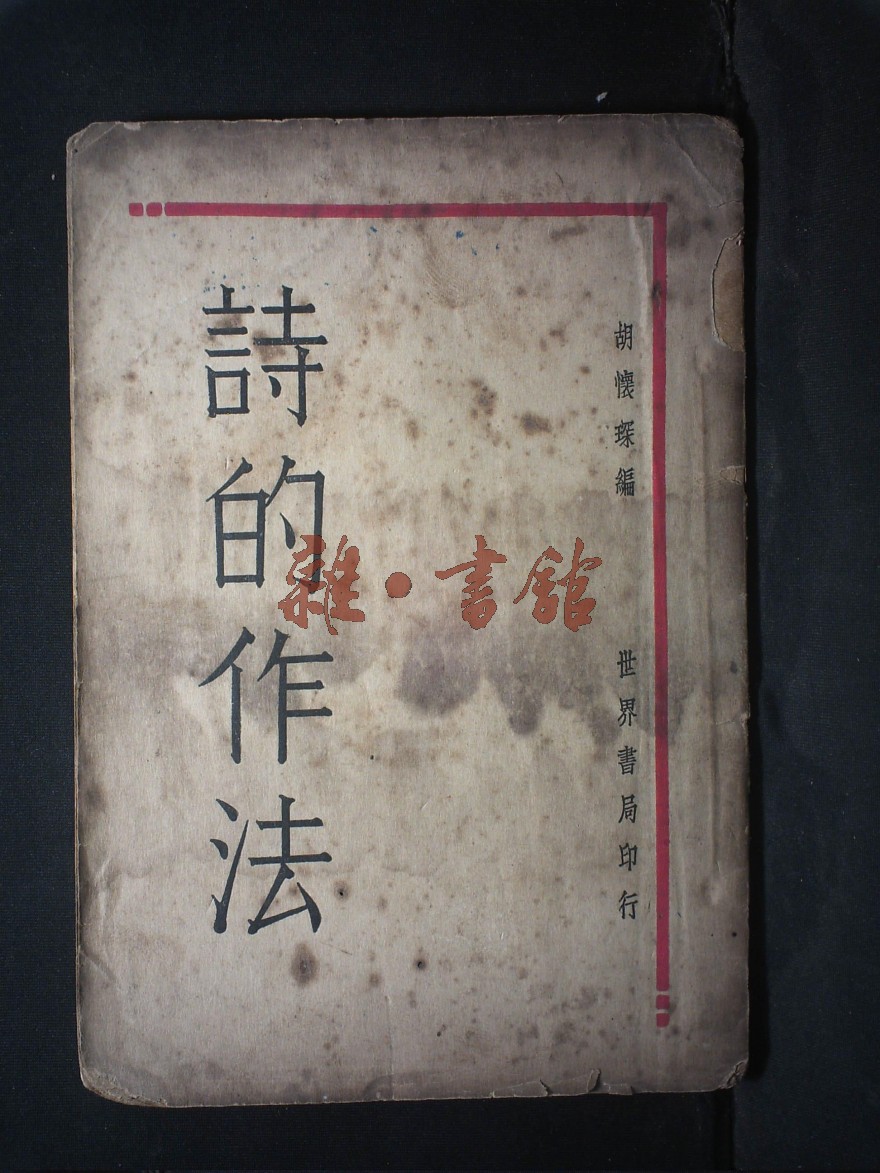 胡懷琛編
世界書局印行
詩的作法
雜·書館